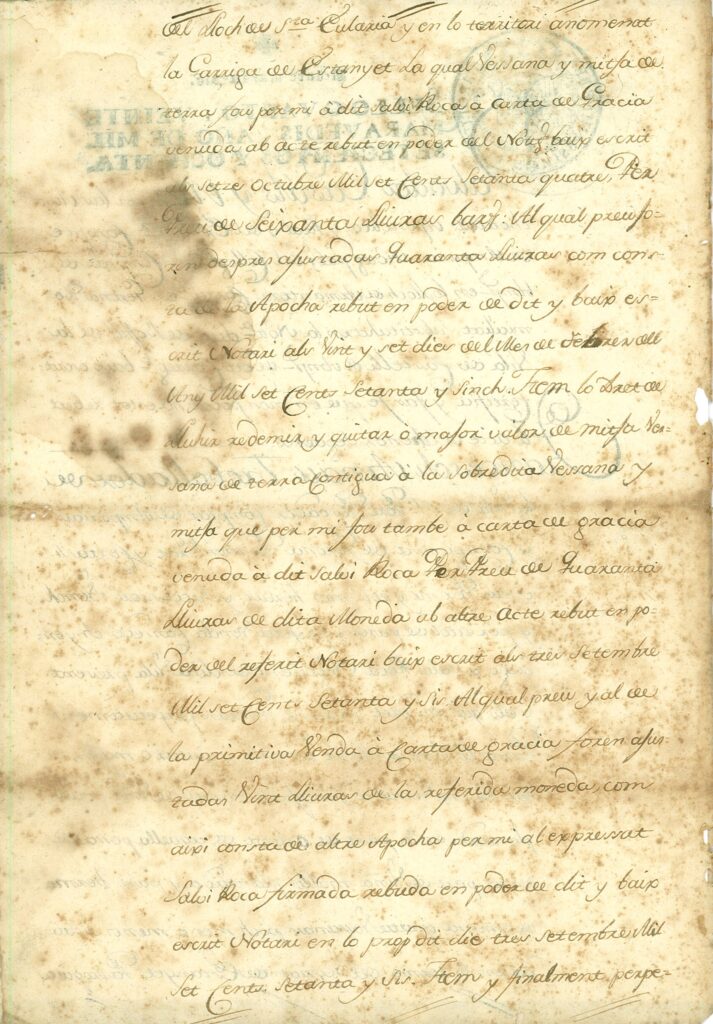 del lloch de Sta. Eularia y en lo territori anomenat
la Garriga de Estanyet la qual Vessana y mitsa de
terra fou per mi à dit Salvi Roca à Carta de Gracia
venuda ab Acte rebut en poder del Notri. baix escrit
als setze Octubre Mil set Cents Setanta quatre, Per
Preu de Seixanta lliuras barzs: Al qual preu fo=
ren despres ajustadas Quaranta lliuras com cons=
ta de la Apocha rebut en poder de dit y baix es=
crit Notari als Vint y set dies del Mes de Febrer del
Any Mil set Cents Setanta y Sinch. Item lo Dret de
lluhir redemir, y quitar ò major valor de mitsa Ves=
sana de terra Contigua à la Sobredita Vessana y
mitsa que per mi fou tambe à carta de gracia
venuda à dit Salvi Roca Per Preu de Quaranta
lliuras de dita Moneda ab altre Acte rebut en po=
der del referit Notari baix escrit als tres Setembre
Mil set Cents Setanta y Sis Al qual preu y al de
la primitiva Venda à Carta de gracia foren ajus=
tadas Vint lliuras de la referida moneda, com
aixi consta de altre Apocha per mi al expressat
Salvi Roca firmada rebuda en poder de dit y baix
escrit Notari en lo prop dit die tres Setembre Mil
Set Cents Setanta y Sis. Item y finalment perpe=